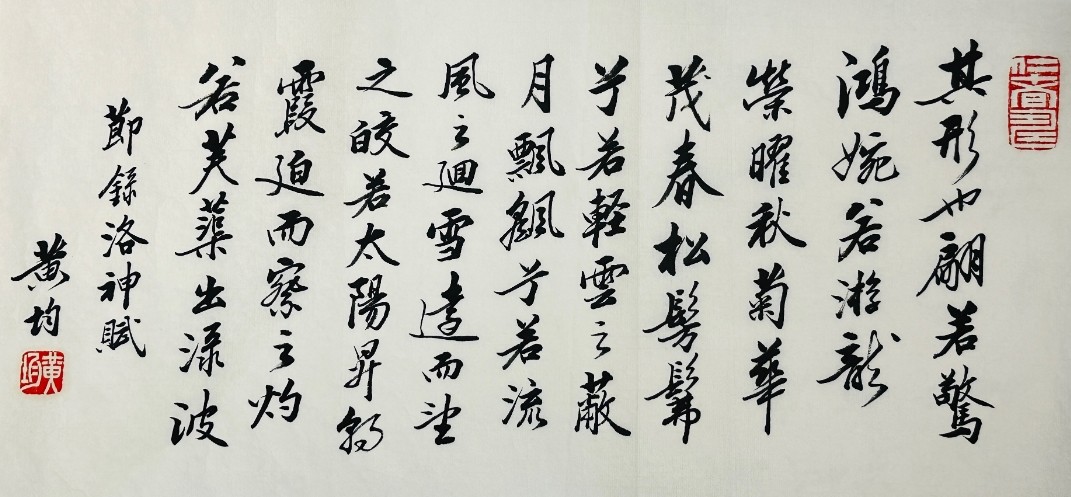 其形也翩若驚
鴻婉若游龍
榮曜秋菊華
茂春松髣髴
兮若軽雲之蔽
月飄飖兮若流
風之迴雪遠而望
之皎若太陽昇朝
霞迫而察之灼
若芙蕖出渌波
節錄洛神賦
黄均
黄均